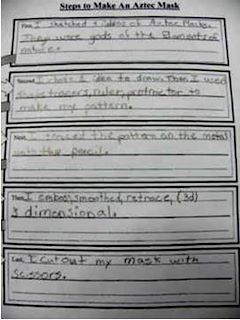 Steps to Make An Aztec Mask
First I sketched 4 ideas of Aztec Masks.
They were gods of the Elements of
nature.
Second I chose 1 idea to draw. Then I used
tracers, ruler, protracter to
make my pattern.
Next I traced the pattern on the metal
with the pencil.
Then I emboss, smoothed, retrace, (3d)
3 dimensional.
Last I cut out my mask with
scissors.